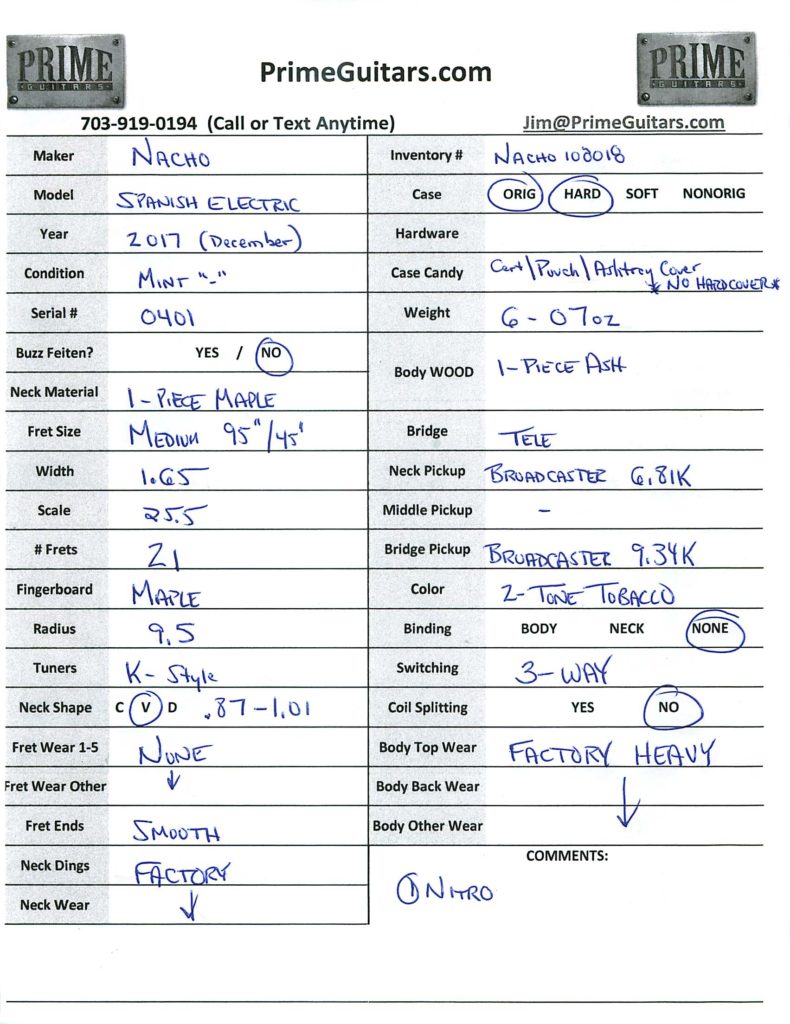 PRIME
GUITARS
PrimeGuitars.com
PRIME
GUITARS
703-919-0194 (Call or Text Anytime)
Jim@PrimeGuitars.com
Maker NACHO
Inventory # NACHO 102018
Model SPANISH ELECTRIC
Case ORIG HARD SOFT NONORIG
Year 2017 (December)
Hardware
Condition MINT "-"
Case Candy Cert\Pouch\Ashtray Cover
*NO HARDCOVER*
Serial # 0401
Weight 6-07oz
Buzz Feiten? YES / NO
Body WOOD 1-PIECE ASH
Neck Material 1-PIECE MAPLE
Fret Size MEDIUM 95"/45"
Bridge TELE
Width 1.65
Neck Pickup BROADCASTER 6.81K
Scale 25.5
Middle Pickup -
# Frets 21
Bridge Pickup BROADCASTER 9.34K
Fingerboard MAPLE
Color 2-TONE TOBACCO
Radius 9.5
Binding BODY NECK NONE
Tuners K-Style
Switching 3-WAY
Neck Shape C V D .87-1.01
Coil Splitting YES NO
Fret Wear 1-5 NONE
Body Top Wear FACTORY HEAVY
Fret Wear Other
Body Back Wear
Fret Ends SMOOTH
Body Other Wear
Neck Dings FACTORY
COMMENTS:
Neck Wear
① NITRO